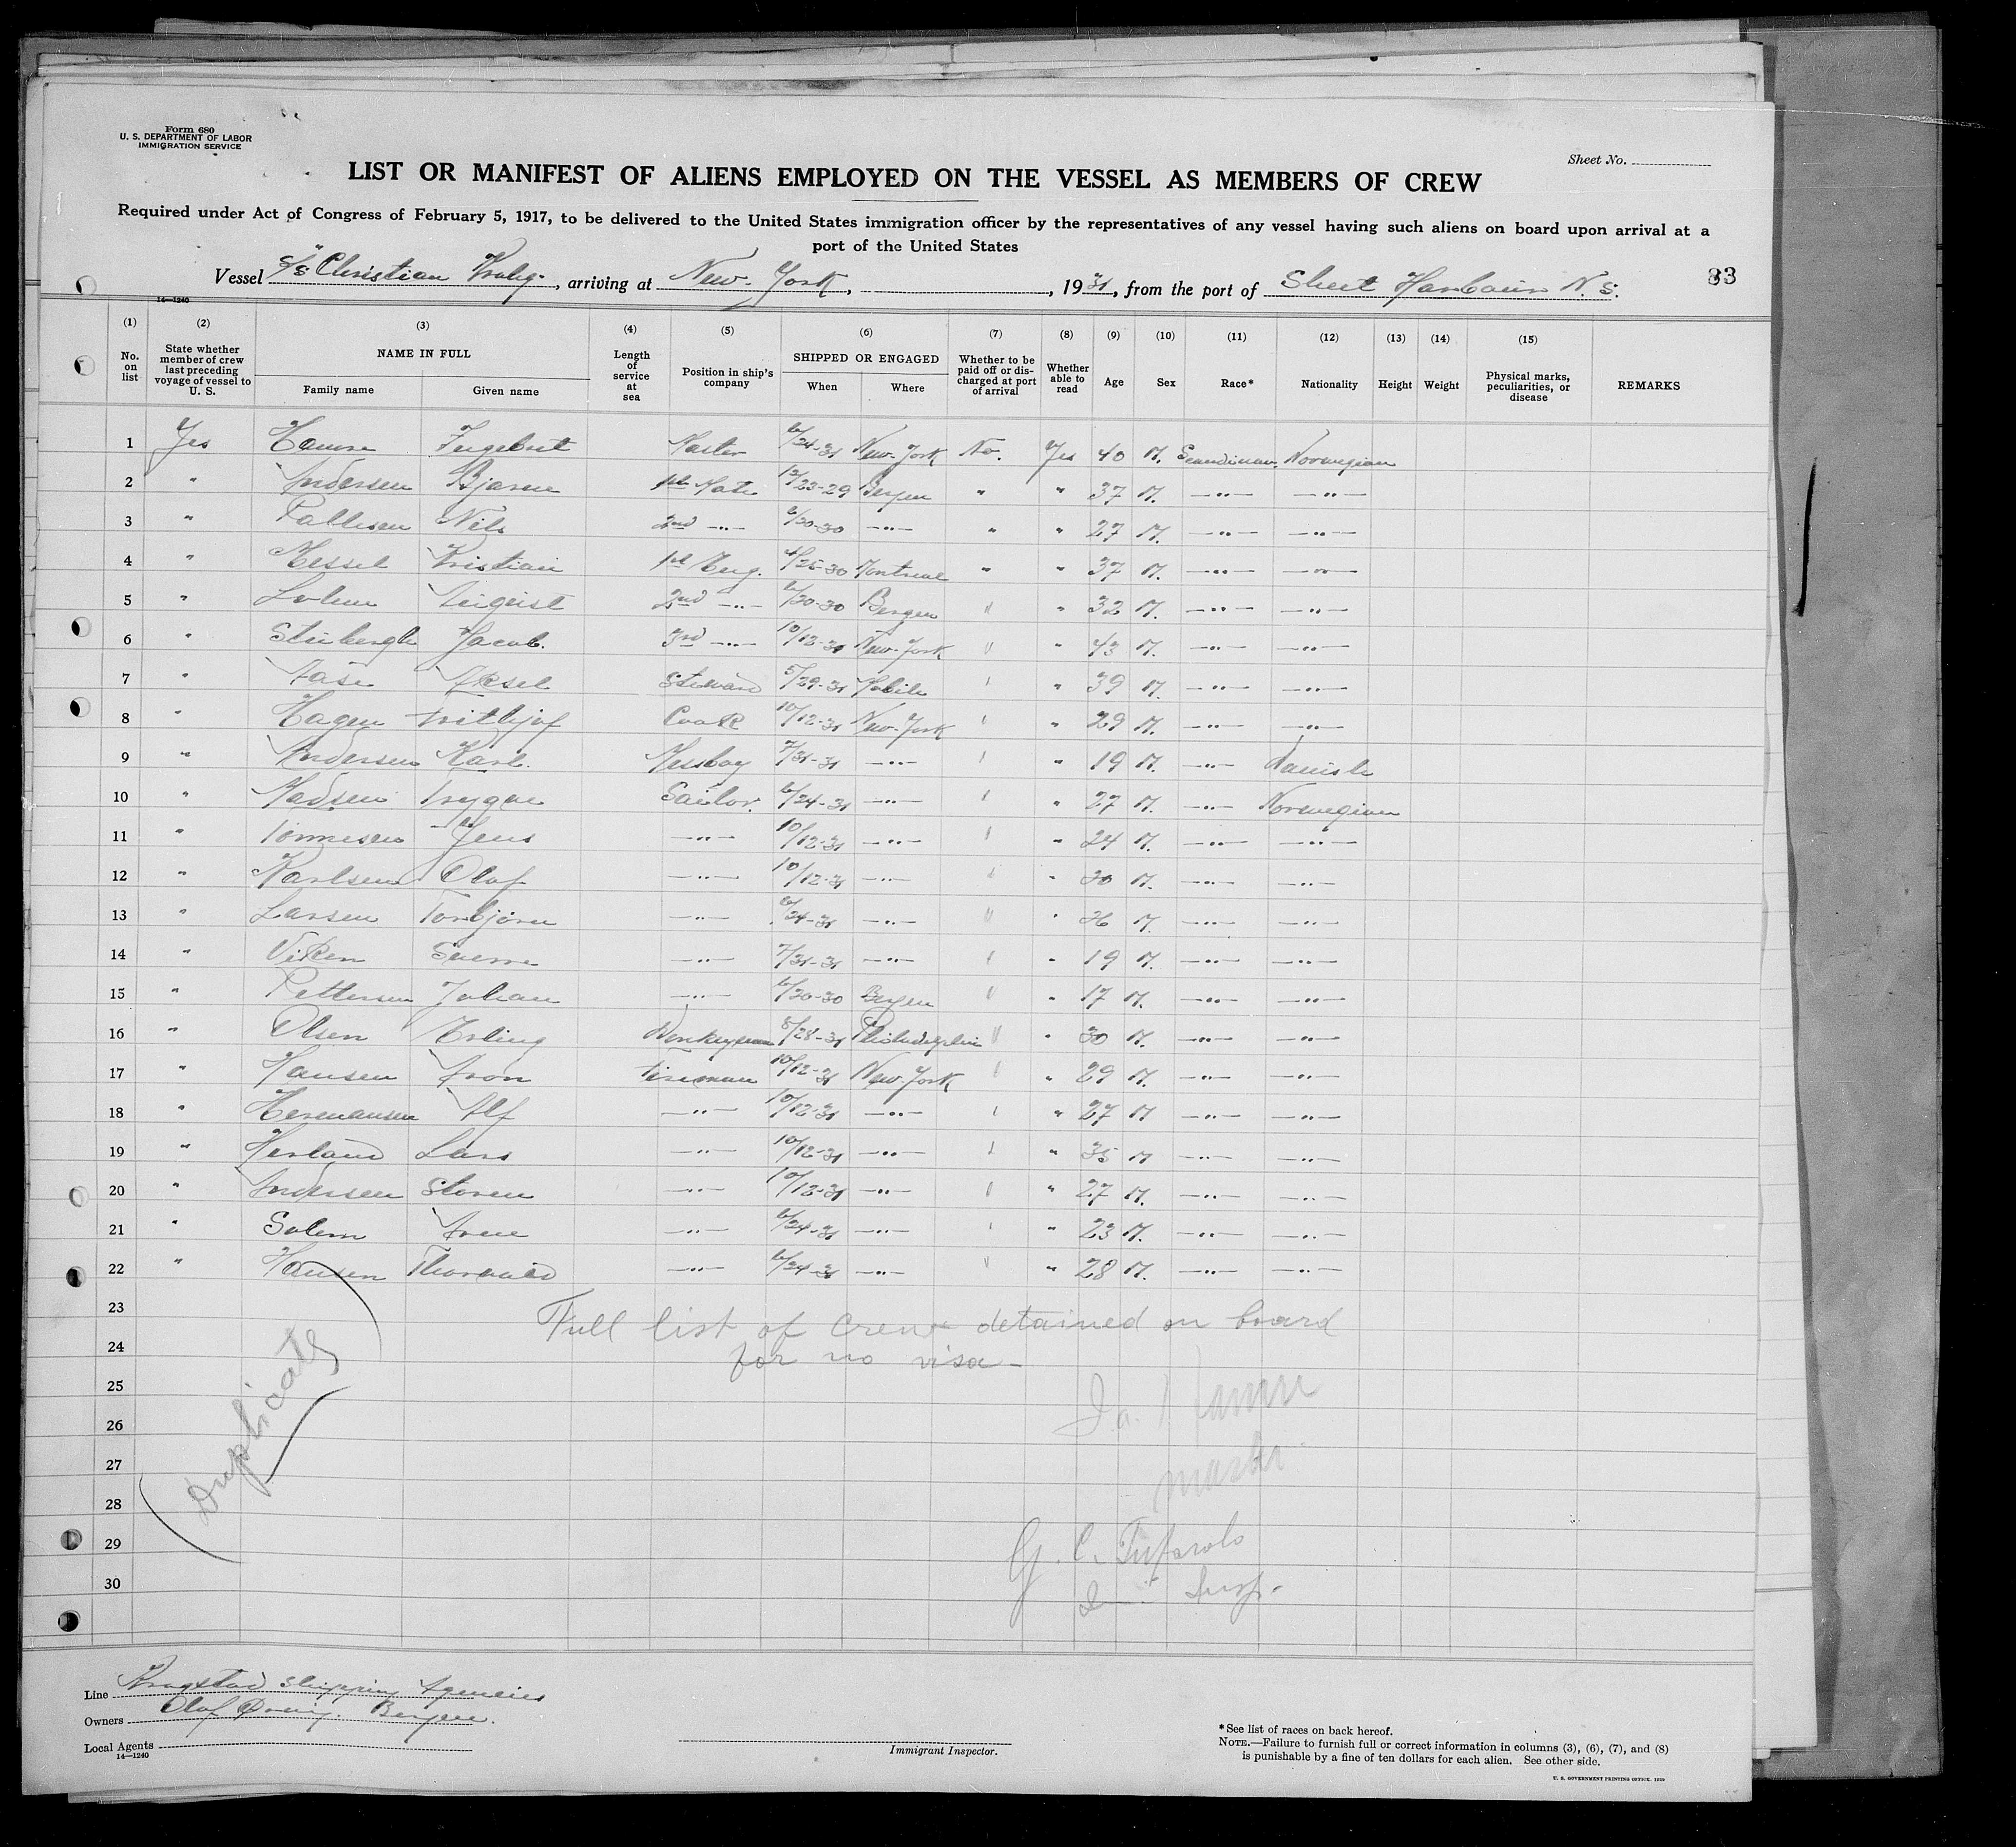 Form 680
U. S. DEPARTMENT OF LABOR
IMMIGRATION SERVICE
Sheet No.
LIST OR MANIFEST OF ALIENS EMPLOYED ON THE VESSEL AS MEMBERS OF CREW
Required under Act of Congress of February 5, 1917, to be delivered to the United States immigration officer by the representatives of any vessel having such aliens on board upon arrival at a
port of the United States
Vessel S/S "Christian Krohg", arriving at New-York, , 1931, from the port of Sheet Harbour N. S. 33
14—1240
(1) (2) (3) (4) (5) (6) (7) (8) (9) (10) (11) (12) (13) (14) (15)
No. on list State whether member of crew last preceding voyage of vessel to U. S. NAME IN FULL Family name Given name Length of service at sea Position in ship's company SHIPPED OR ENGAGED When Where Whether to be paid off or discharged at port of arrival Whether able to read Age Sex Race* Nationality Height Weight Physical marks, peculiarities, or disease REMARKS
1 Yes Hamre Ingebret Master 6/24-31 New-York No. Yes 40 M. Scandinav. Norwegian
2 " Andersen Bjarne 1st Mate 12/23-29 Bergen " " 37 M. —"— —"—
3 " Pallesen Nils 2nd —"— 6/20-30 —"— " " 27 M. —"— —"—
4 " Messel Kristian 1st Eng. 4/25-30 Montreal " " 37 M. —"— —"—
5 " 2nd —"— 6/20-30 Bergen " " 32 M. —"— —"—
6 " Jacob. 3rd —"— 10/12-31 New-York " " 43 M. —"— —"—
7 " Aase Aksel Steward 5/29-31 Mobile " " 39 M. —"— —"—
8 " Hagen Frithjof Cook 10/12-31 New-York " " 29 M. —"— —"—
9 " Andersen Karl. Messboy 7/31-31 —"— " " 19 M. —"— Danish
10 " Madsen Trygve Sailor. 6/24-31 —"— " " 27 M. —"— Norwegian
11 " Tönnesen Jens —"— 10/12-31 —"— " " 24 M. —"— —"—
12 " Karlsen Olaf —"— 10/12-31 —"— " " 30 M. —"— —"—
13 " Larsen Torbjörn —"— 6/24-31 —"— " " 26 M. —"— —"—
14 " Viken Sverre —"— 7/31-31 —"— " " 19 M. —"— —"—
15 " Pettersen Johan —"— 6/20-30 Bergen " " 17 M. —"— —"—
16 " Olsen Erling Donkeyman 8/28-31 Philadelphia " " 30 M. —"— —"—
17 " Hansen Aron Fireman 10/12-31 New-York " " 29 M. —"— —"—
18 " Hermansen Alf —"— 10/12-31 —"— " " 27 M —"— —"—
19 " Lars —"— 10/12-31 —"— " " 35 M —"— —"—
20 " Andersen —"— 10/12-31 —"— " " 27 M. —"— —"—
21 " Solem Arne —"— 6/24-31 —"— " " 23 M. —"— —"—
22 " Hansen Thorvald —"— 6/24-31 —"— " " 28 M. —"— —"—
23 Full list of crew detained on board
24 for no visa —
25
26 Hamre
27 master
28 Duplicate
29 G. C.
30 Insp.
Line Shipping Agencies
Owners Olaf Bergen.
Local Agents
14—1240
Immigrant Inspector.
*See list of races on back hereof.
NOTE.—Failure to furnish full or correct information in columns (3), (6), (7), and (8)
is punishable by a fine of ten dollars for each alien. See other side.
U. S. GOVERNMENT PRINTING OFFICE. 1929